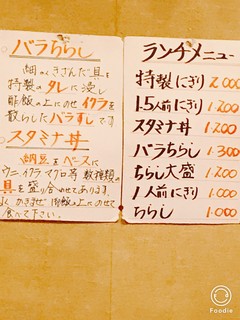 バラちらし
細かくきざんだ具を
特製のタレに浸し
酢飯の上にのせイクラを
散らしたバラすしです
スタミナ丼
納豆をベースに
ウニ イクラ マグロ等 数種類の
具を盛り合わせてあります。
よくかきまぜ 御飯の上にのせて
食べて下さい。
ランチメニュー
特製にぎり 2.000
1.5人前にぎり 1.200
スタミナ丼 1.200
バラちらし 1.300
ちらし大盛 1.200
1人前にぎり 1.000
ちらし 1.000
Foodie